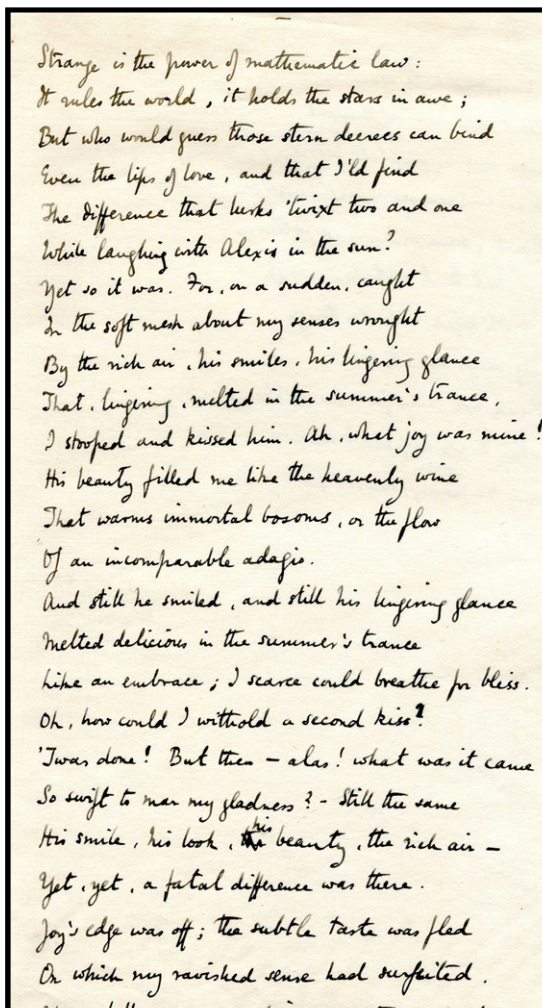 Strange is the power of mathematic law:
It rules the world, it holds the stars in awe;
But who would guess those stern decrees can bind
Even the lips of love, and that I'ld find
The difference that lurks 'twixt two and one
While laughing with Alexis in the sun?
Yet so it was. For, on a sudden, caught
In the soft mesh about my senses wrought
By the rich air, his smiles, his lingering glance
That, lingering, melted in the summer's trance,
I stooped and kissed him. Ah, what joy was mine!
His beauty filled me like the heavenly wine
That warms immortal bosoms, or the flow
Of an incomparable adagio.
And still he smiled, and still his lingering glance
Melted delicious in the summer's trance
Like an embrace; I scarce could breathe for bliss.
Oh, how could I withold a second kiss?
'Twas done! But then – alas! what was it came
So swift to mar my gladness? – Still the same
His smile, his look, his beauty, the rich air –
Yet, yet, a fatal difference was there.
Joy's edge was off; the subtle taste was fled
On which my ravished sense had surfeited.